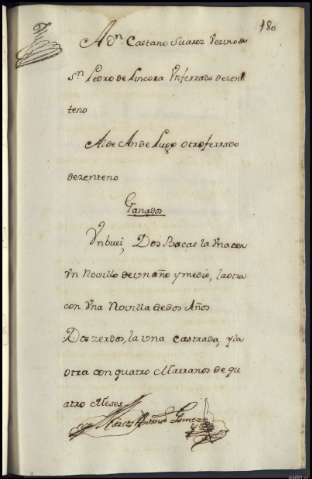 180
A Dn. Caetano Suarez Vezino de
Sn. Pedro de Lincora Unferrado dezent
teno
Al de An de Lugo otro ferrado
dezenteno
Ganados
Un buei, Dos Bacas la Vna con
Un Novillo de un año y medio, la otra
con Vna Novilla de dos Años
Dos zerdos, la una castrada, y la
otra con quatro Marranos de qu
atro Meses
Antonio Gomez